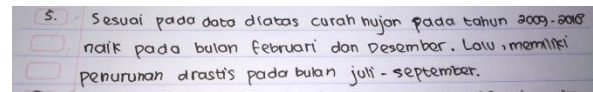 5. Sesuai pada data diatas curah hujan pada tahun 2009-2018
naik pada bulan februari dan Desember. Lalu, memiliki
penurunan drastis pada bulan juli - september.